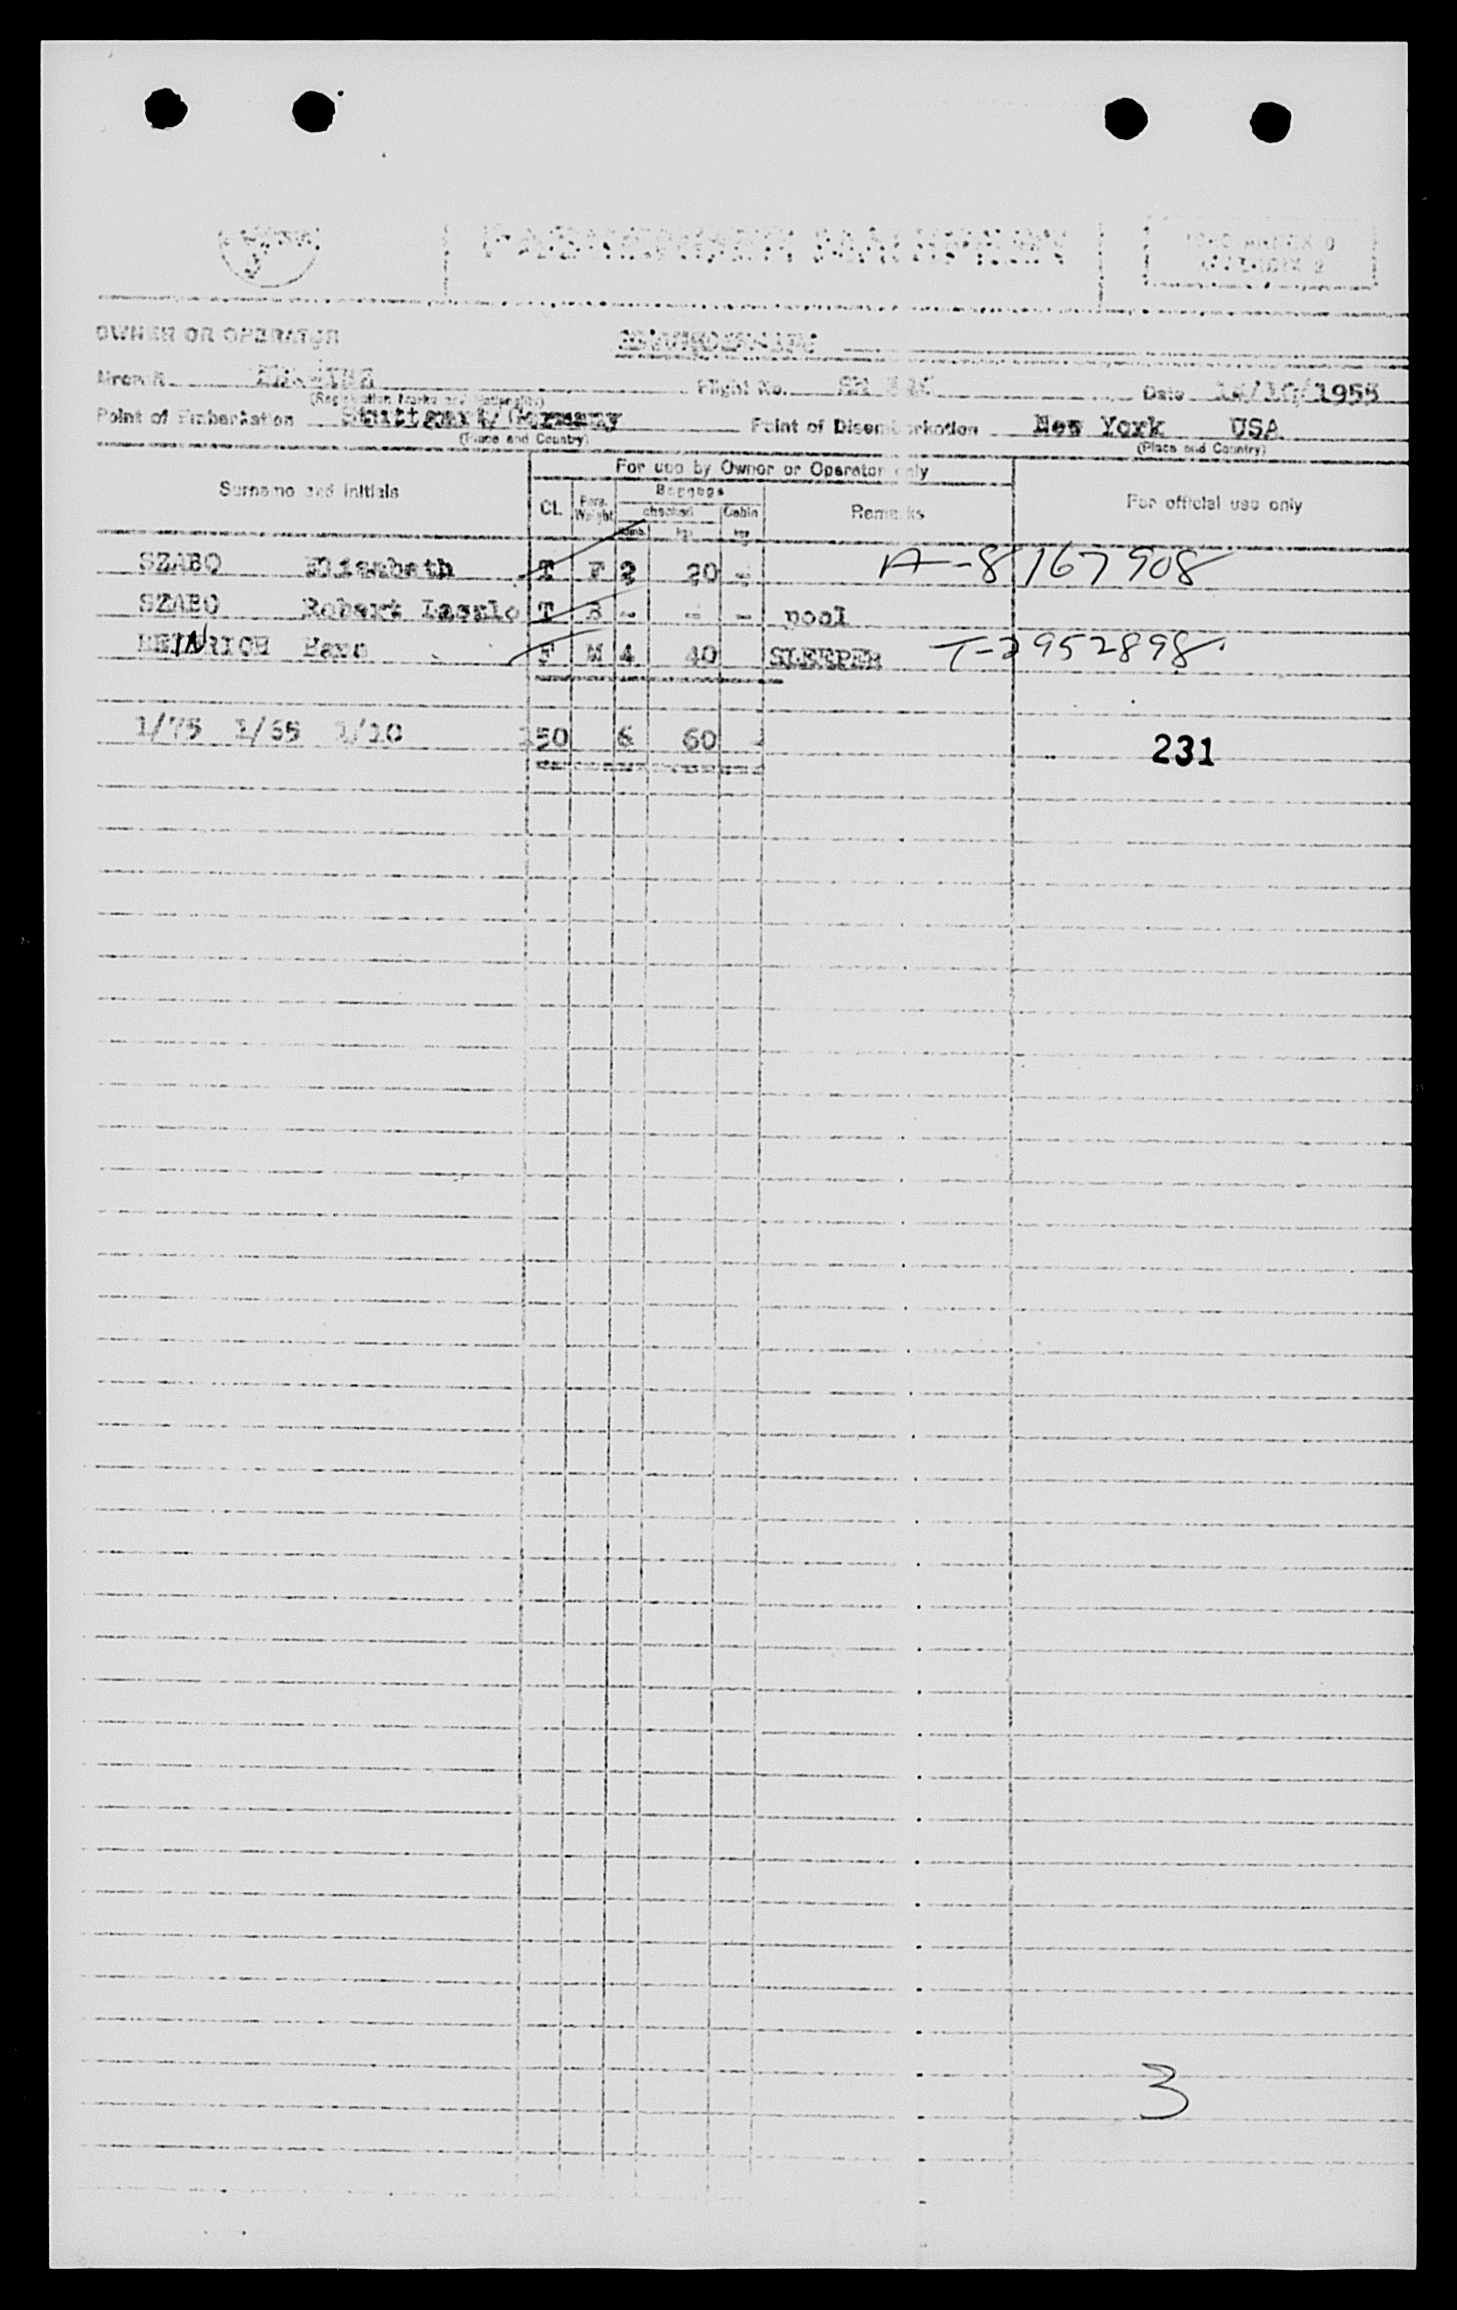 PASSENGER MANIFEST
OWNER OR OPERATOR
Aircraft Flight No. Date /1955
(Registration Marks and Nationality)
Point of Embarkation Stuttgart/Germany Point of Disembarkation New York USA
(Place and Country) (Place and Country)
For use by Owner or Operator only
Surname and initials CL Pass. Weight Baggage Remarks For official use only
checked Cabin
Numb. kgs kgs
SZABO Elisabeth T F 2 20 - A-8167908
SZABO Robert Laszlo T - - - pool
HEINRICH Hans F M 4 40 SLEEPER T-2952898.
1/75 1/65 1/10 150 6 60 - 231
3